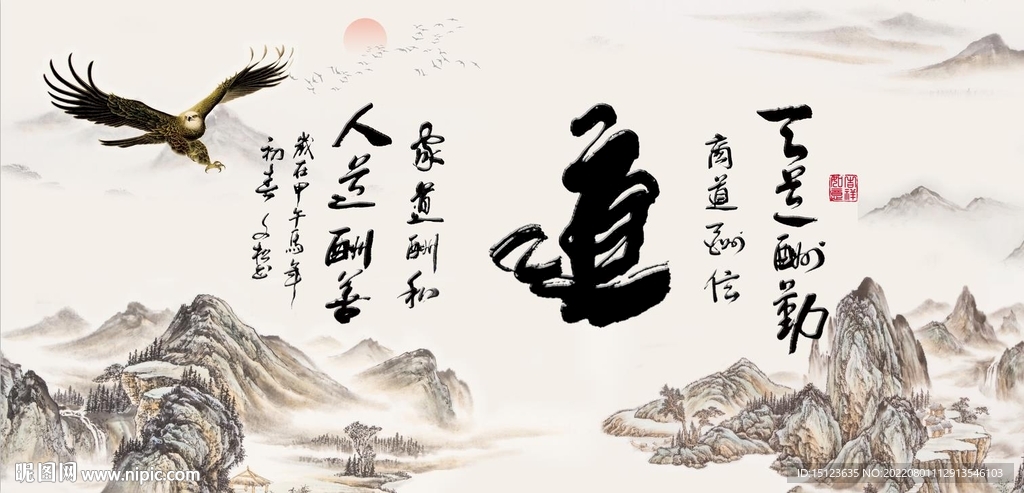 天道酬勤
商道酬信
道
家道酬和
人道酬善
歲在甲午馬年
初春文松书
吉祥如意
昵图网 www.nipic.com
ID:15123635 NO:20220801112913546103